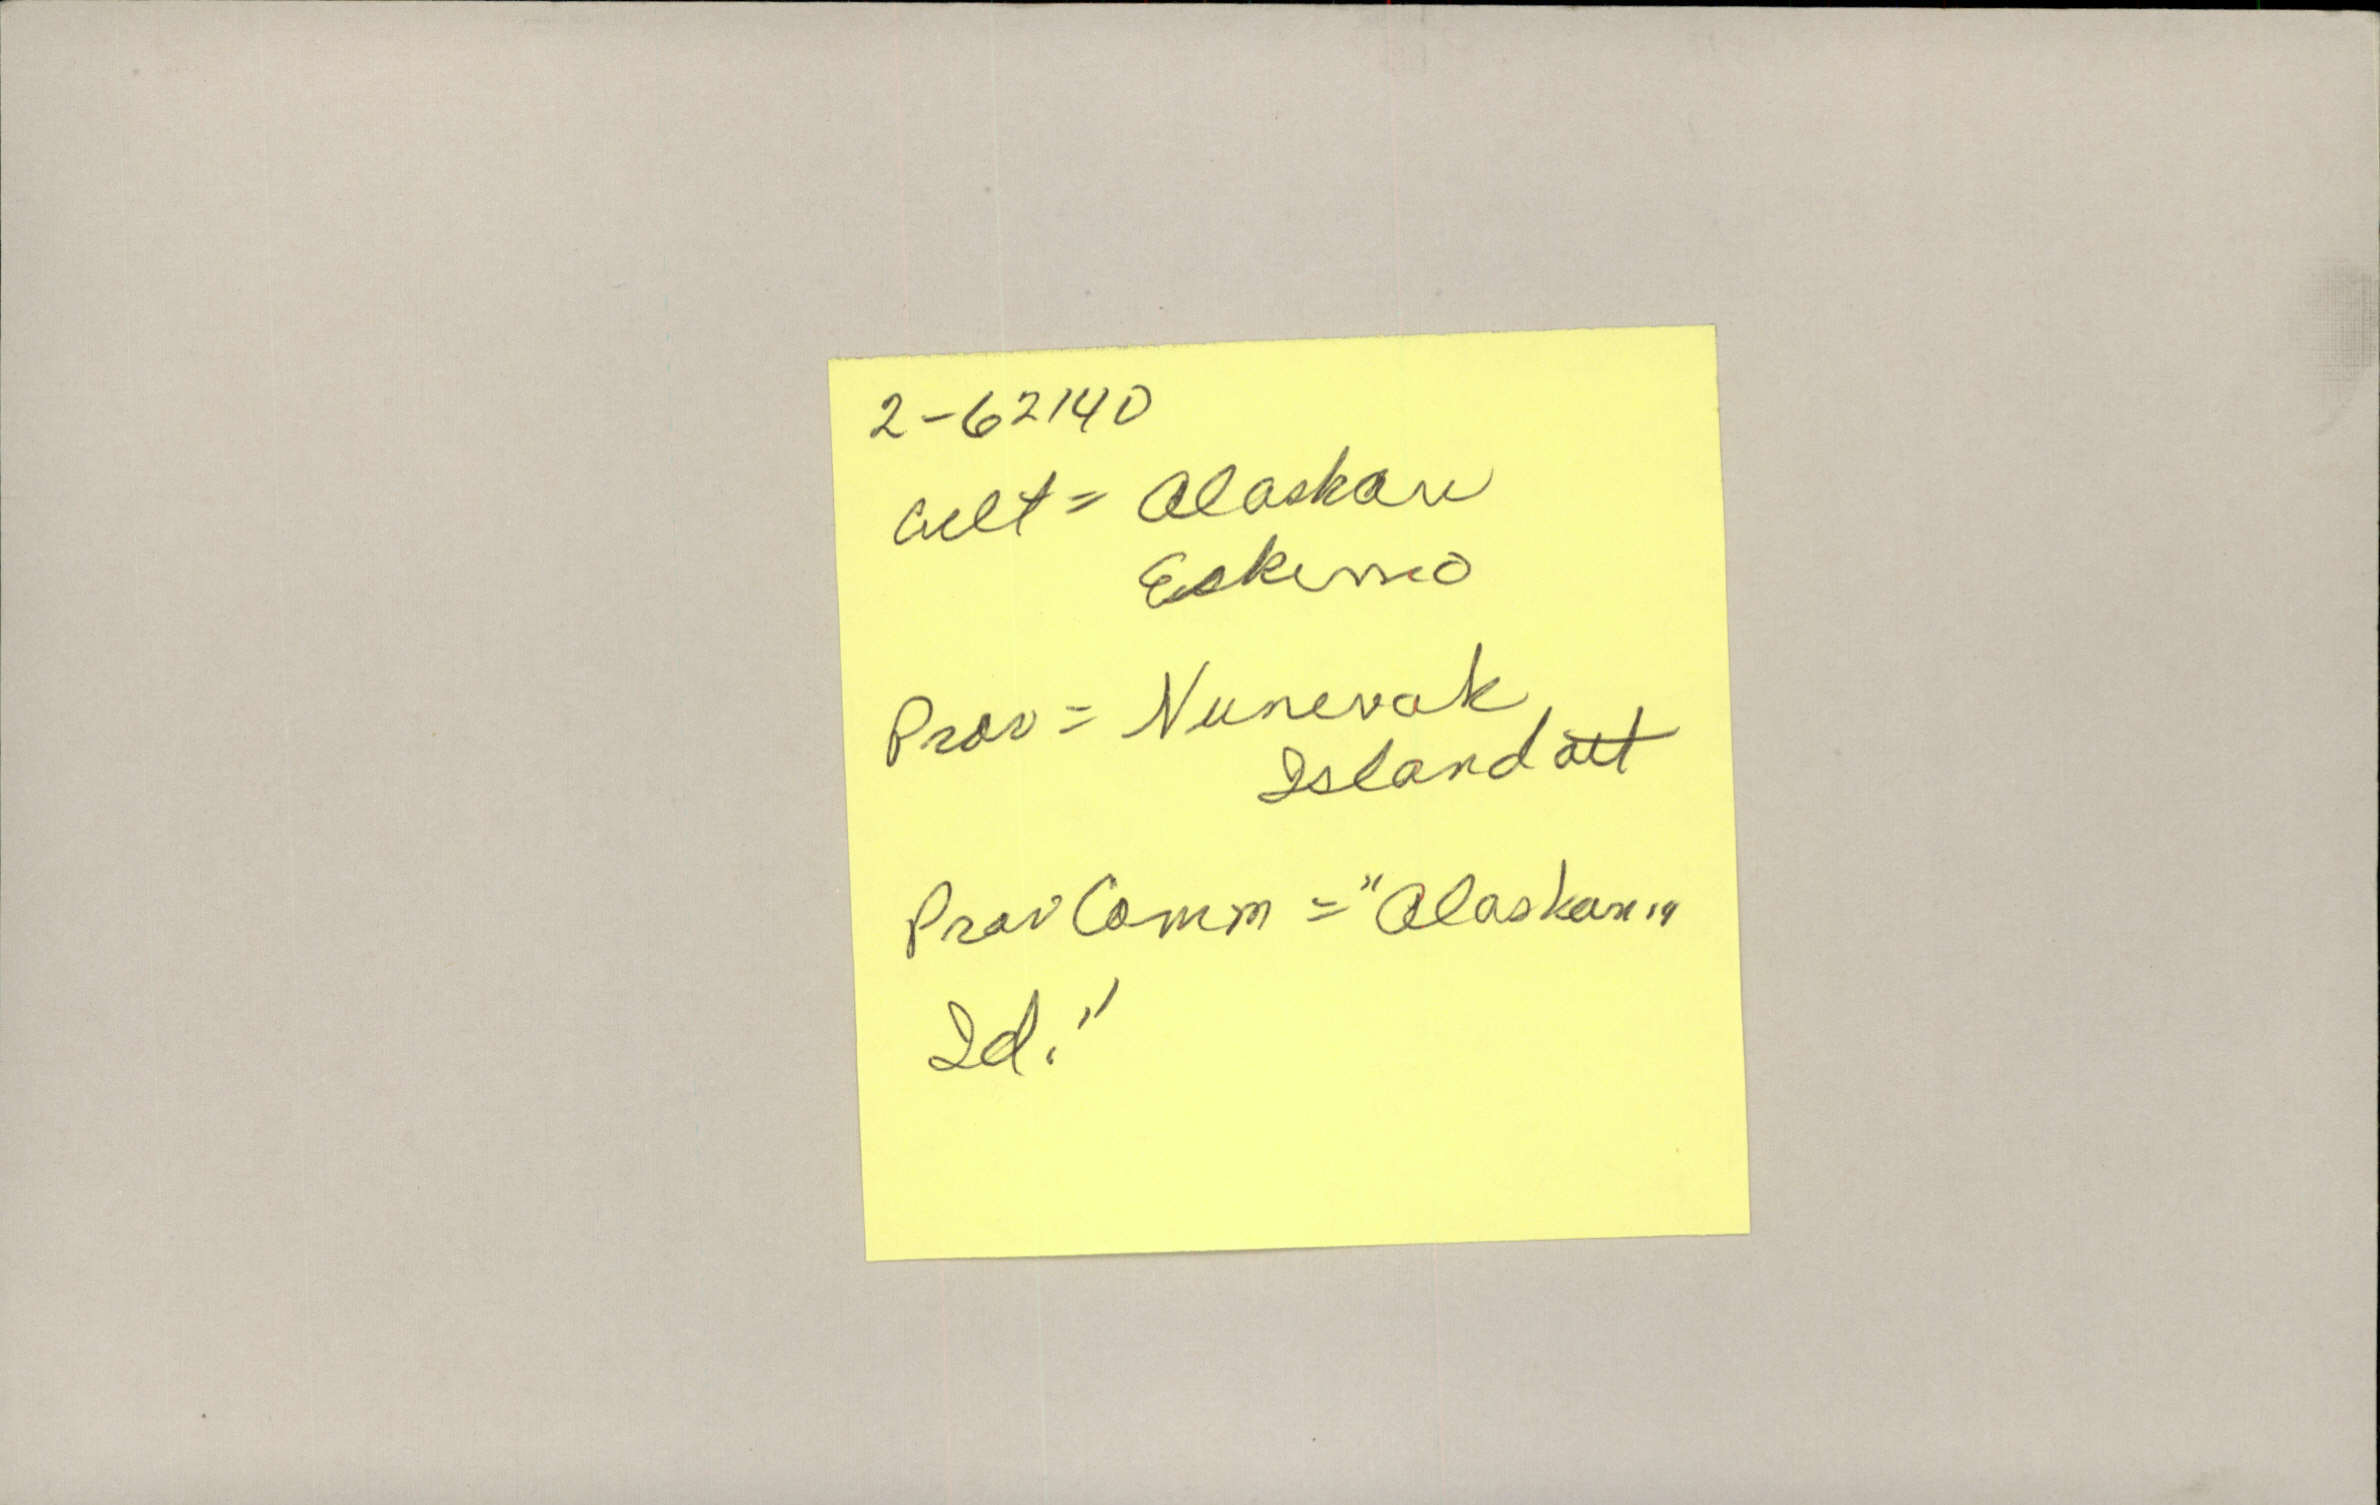 2-62140
Cult = Alaskan
Eskimo
Prov = Nunevak
Island att
Prov Comm = "Alaskan
Id."